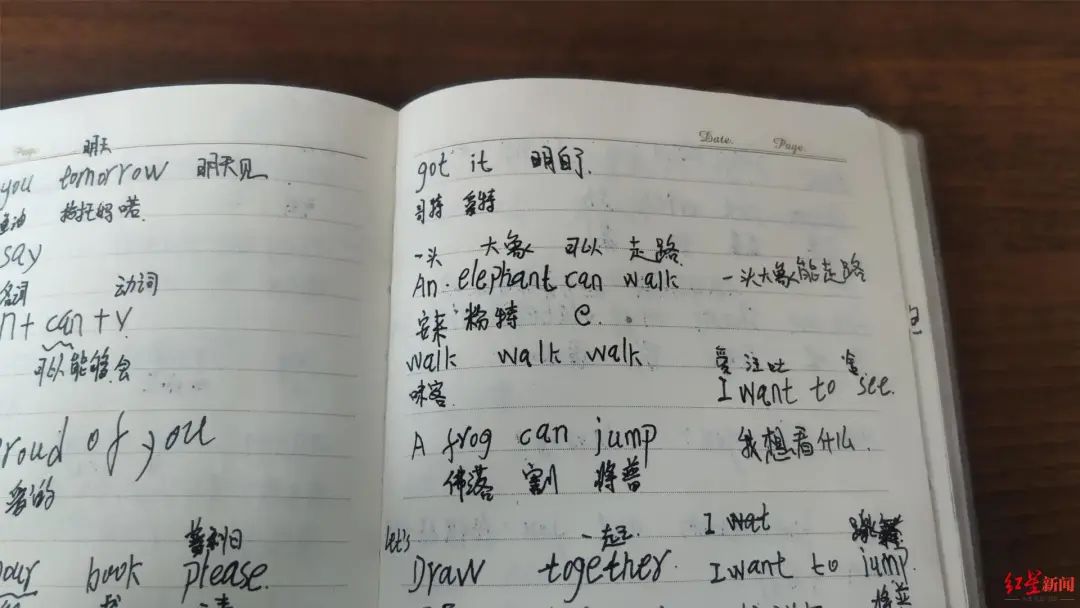 明天
you tomorrow 明天见
say
名词 动词
n + can + v
可以能够会
roud of you
book please.
Date. Page.
got it 明白了.
哥特 爱特
一头 大象 可以 走路
An elephant can walk 一头大象能走路
安莱 粉特 e.
walk walk walk.
味客.
爱 注吐 谁
I want to see.
A frog can jump 我想看什么.
佛落 割 将普
let's 一起 I wat
Draw together. I want to jump.
将普
红星新闻